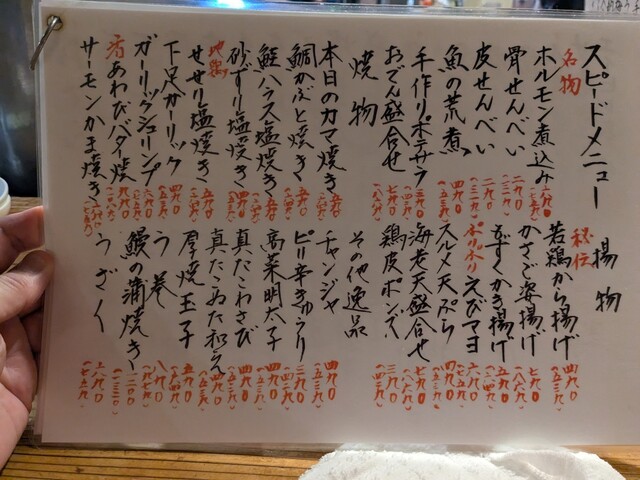 スピードメニュー
名物 ホルモン煮込み 六九〇
骨せんべい 二九〇 (三一九)
皮せんべい 二九〇 (三一九)
魚の荒煮 四九〇
手作りポテサラ 三九〇
おでん盛合せ 七九〇 (八六九)
焼物
本日のカマ焼き
鯛かぶと焼き
鮭ハラス塩焼き
砂ずり塩焼き 四九〇
地鶏 せせり塩焼き 五九〇
下足ガーリック 四九〇
ガーリックシュリンプ 六九〇
あわびバター焼 九九〇
サーモンかま焼き
揚物
秘伝 若鶏から揚げ 四九〇 (五三九)
かさご姿揚げ 七九〇 (八六九)
もずくかき揚げ 五九〇 (六四九)
ポリポリえびマヨ 六九〇 (七五九)
スルメ天ぷら 四九〇 (五三九)
海老天盛合せ 七九〇 (八六九)
鶏皮ポンズ 三九〇
その他逸品
チャンジャ 四九〇 (五三九)
ピリ辛きゅうり 三九〇 (四二九)
高菜明太子 四九〇 (五三九)
真だこわさび 四九〇 (五三九)
真だこぬた和え 四九〇 (五三九)
厚焼玉子 五九〇 (六四九)
う巻 八九〇 (九七九)
鰻の蒲焼き 一二〇〇 (一三二〇)
うざく 六九〇 (七五九)